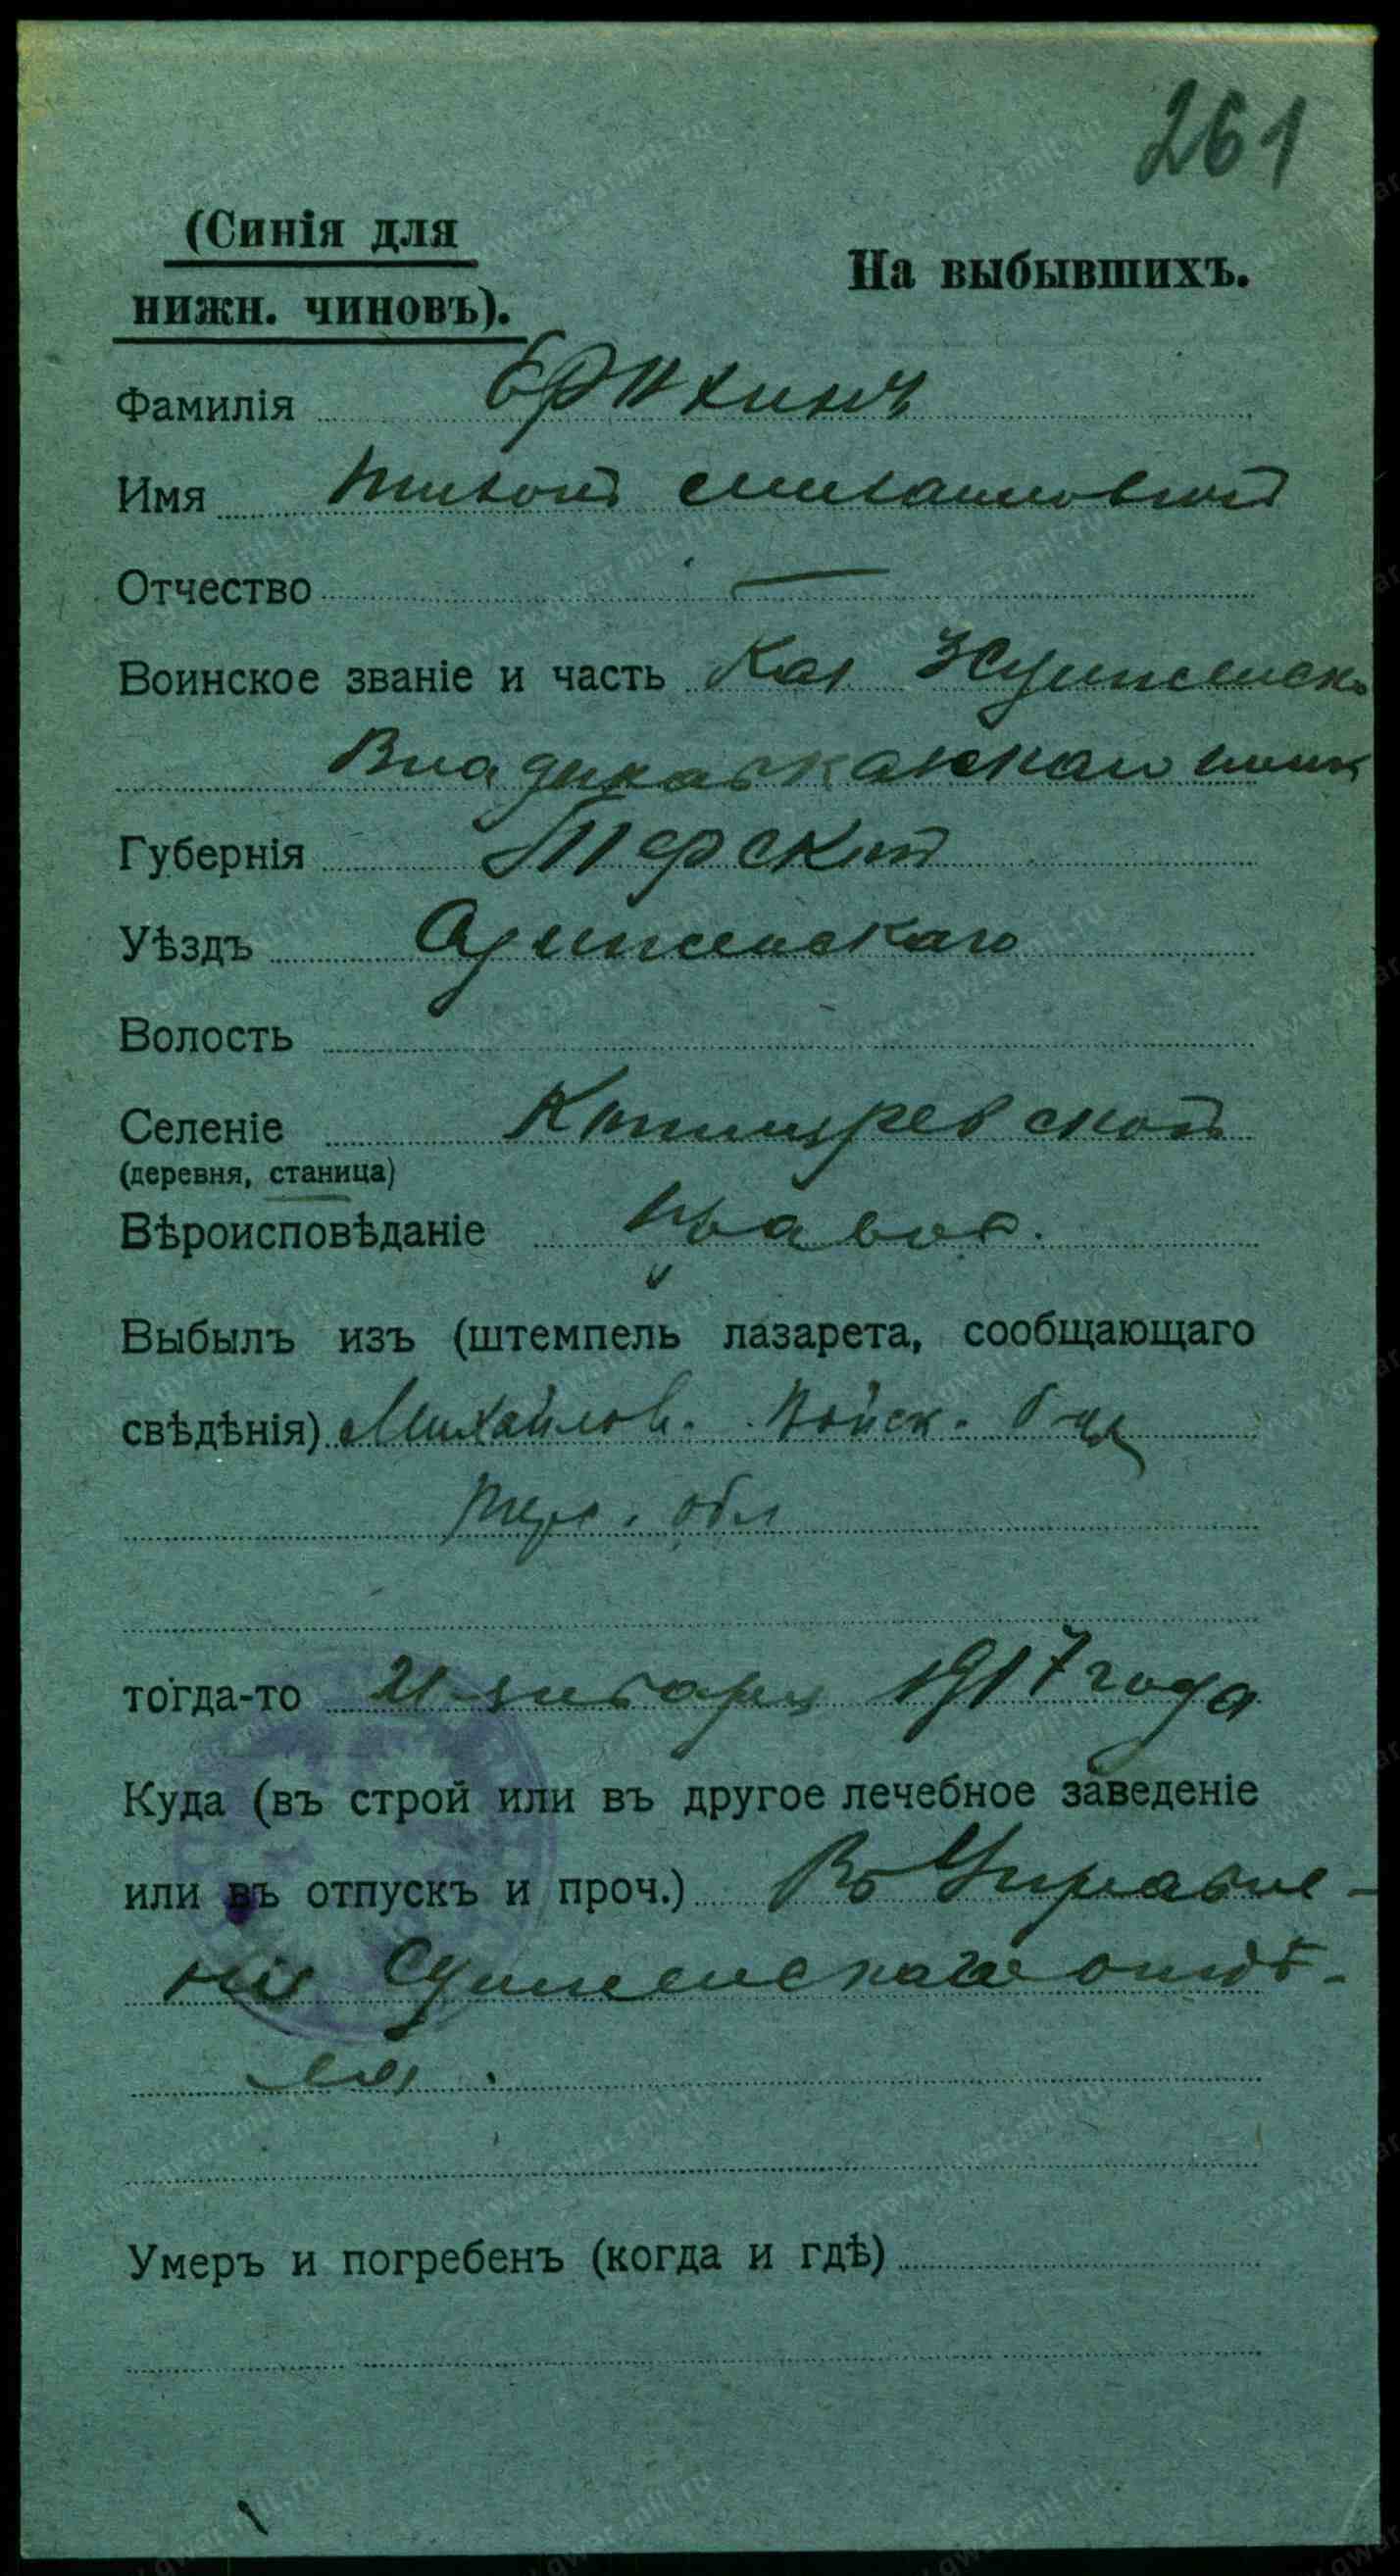 261
(Синія для
нижн. чиновъ).
На выбывшихъ.
Фамилія Ерихинъ
Имя Тихон
Отчество —
Воинское званіе и часть Каз
Губернія Терской
Уѣздъ Сунженскаго
Волость
Селеніе
(деревня, станица)
Вѣроисповѣданіе Правос.
Выбылъ изъ (штемпель лазарета, сообщающаго
свѣдѣнія) Михайлов. Войск. б-ца
Терс. обл
тогда-то 21 января 1917 года
Куда (въ строй или въ другое лечебное заведеніе
или въ отпускъ и проч.) Въ Управле-
ніе Сунженскаго отдѣ-
ла.
Умеръ и погребенъ (когда и гдѣ)